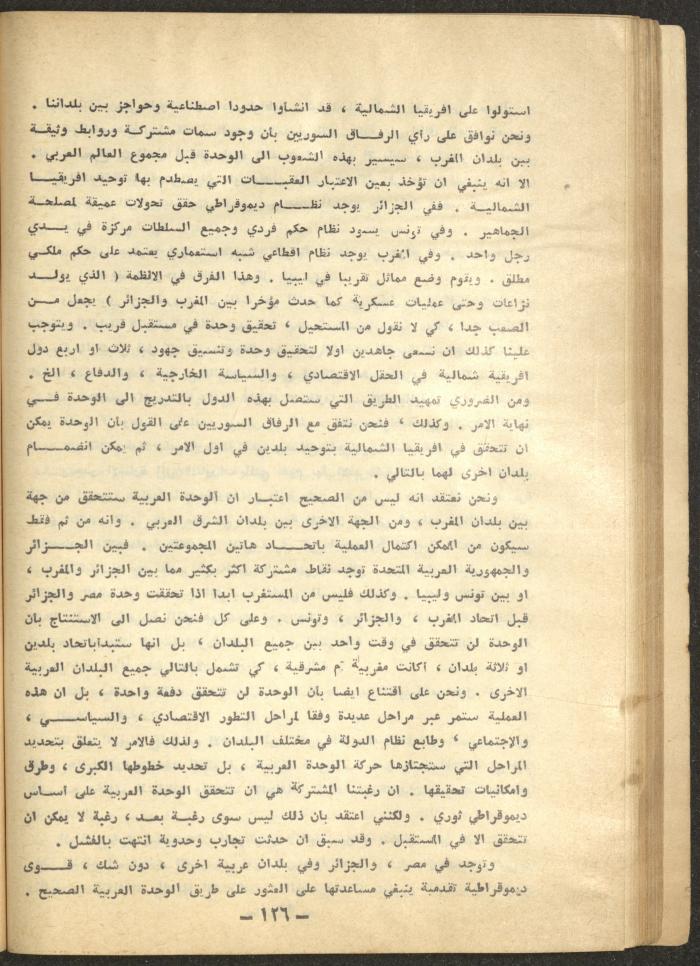 استولوا على افريقيا الشمالية ، قد انشأوا حدودا اصطناعية وحواجز بين بلداننا .
ونحن نوافق على رأي الرفـاق السوريين بأن وجود سمات مشتركة وروابط وثيقة
بين بلدان المغرب ، سيسير بهذه الشعوب الى الوحدة قبل مجموع العالم العربي .
الا انه ينبغي ان تؤخذ بعين الاعتبار العقبـــات التي يصطدم بها توحيد افريقيـا
الشمالية . ففي الجزائر يوجد نظـــام ديموقراطي حقق تحولات عميقة لمصلحة
الجماهير . وفي تونس يسود نظام حكم فردي وجميع السلطات مركزة في يـدي
رجل واحد . وفي المغرب يوجد نظام اقطاعي شبه استعماري يعتمد على حكم ملكي
مطلق . ويقوم وضع مماثل تقريبا في ليبيا . وهذا الفرق في الانظمة ( الذي يولـد
نزاعات وحتى عمليات عسكرية كما حدث مؤخرا بين المغرب والجزائر ) يجعل مـن
الصعب جدا ، كي لا نقول من المستحيل ، تحقيق وحدة في مستقبل قريب . ويتوجب
علينا كذلك ان نسعى جاهدين اولا لتحقيق وحدة وتنسيق جهود ، ثلاث او اربع دول
افريقية شمالية في الحقل الاقتصادي ، والسياسة الخارجية ، والدفاع ، الخ .
ومن الضروري تمهيد الطريق التي ستصل بهذه الدول بالتدريج الى الوحدة فـــي
نهاية الامر . وكذلك ، فنحن نتفق مع الرفاق السوريين على القول بأن الوحدة يمكن
ان تتحقق في افريقيا الشمالية بتوحيد بلدين في اول الامر ، ثم يمكن انضمـــام
بلدان اخرى لهما بالتالي .
ونحن نعتقد انه ليس من الصحيح اعتبار ان الوحدة العربية ستتحقق من جهة
بين بلدان المغرب ، ومن الجهة الاخرى بين بلدان الشرق العربي . وانه من ثم فقط
سيكون من الممكن اكتمال العملية باتحـــاد هاتين المجموعتين . فبين الجـــزائر
والجمهورية العربية المتحدة توجد نقاط مشتركة اكثر بكثير مما بين الجزائر والمغرب ،
او بين تونس وليبيا . وكذلك فليس من المستغرب ابدا اذا تحققت وحدة مصر والجزائر
قبل اتحاد المغرب ، والجزائر ، وتونس . وعلى كل فنحن نصل الى الاستنتاج بأن
الوحدة لن تتحقق في وقت واحد بين جميع البلدان ، بل انها ستبدأباتحاد بلدين
او ثلاثة بلدان ، أكانت مغربية م مشرقية ، كي تشمل بالتالي جميع البلدان العربية
الاخرى . ونحن على اقتناع ايضا بأن الوحدة لن تتحقق دفعة واحدة ، بل ان هذه
العملية ستمر عبر مراحل عديدة وفقا لمراحل التطور الاقتصادي ، والسياســـي ،
والاجتماعي ، وطابع نظام الدولة في مختلف البلدان . ولذلك فالامر لا يتعلق بتحديد
المراحل التي ستجتازها حركة الوحدة العربية ، بل تحديد خطوطها الكبرى ، وطرق
وامكانيات تحقيقها . ان رغبتنا المشتركة هي ان تتحقق الوحدة العربية على اسـاس
ديموقراطي ثوري . ولكنني اعتقد بأن ذلك ليس سوى رغبـة بعـد ، رغبة لا يمكن ان
تتحقق الا في المستقبل . وقد سبق ان حدثت تجارب وحدوية انتهت بالفشل .
وتوجد في مصر ، والجزائر وفي بلدان عربية اخرى ، دون شك ، قـــوى
ديموقراطية تقدمية ينبغي مساعدتها على العثور على طريق الوحدة العربية الصحيح .
— ١٢٦ —